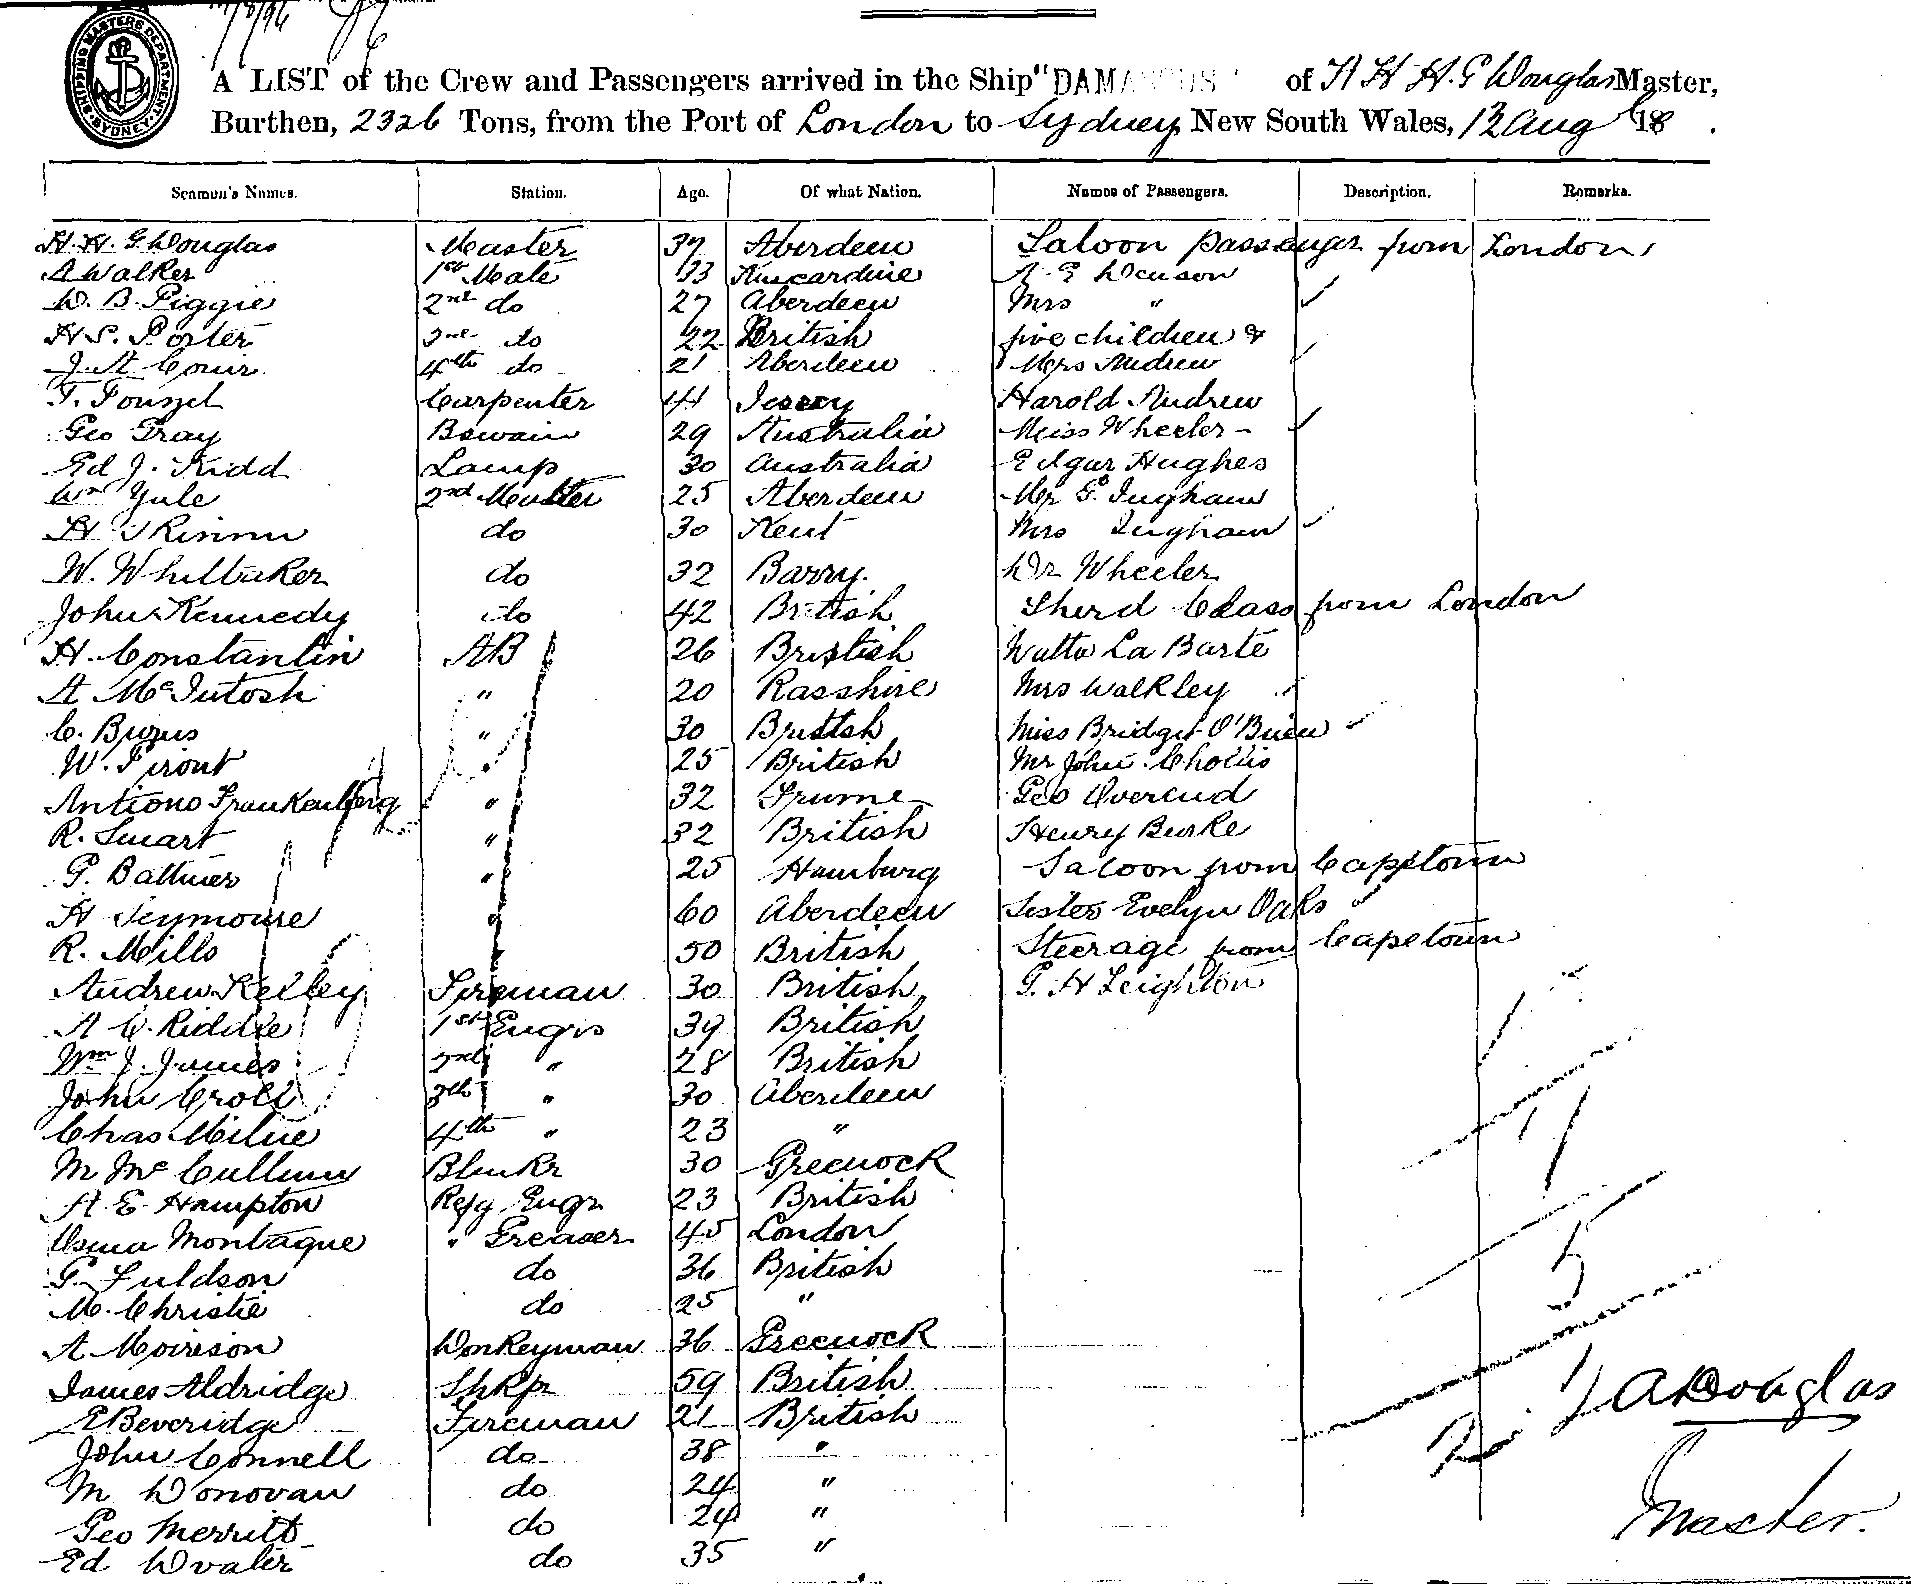 SHIPPING MASTERS DEPARTMENT SYDNEY
A LIST of the Crew and Passengers arrived in the Ship "DAMASCUS" of A H H. G Douglas Master,
Burthen, 2326 Tons, from the Port of London to Sydney New South Wales, 12 Aug 18 .
Seamen's Names. Station. Age. Of what Nation. Names of Passengers. Description. Remarks.
H. H. G. Douglas Master 37 Aberdeen Saloon passenger from London
A Walker 1st Mate 33 Kincardine A. E Denson
W. B. Piggie 2nd do 27 Aberdeen Mrs "
H S. Porter 3rd do 22 British five children &
J. A. Couir 4th do 21 Aberdeen Mrs Andrew
T. Carpenter 41 Jersey Harold Andrew
Geo Gray Bswain 29 Australia Miss Wheeler -
Ed J. Kidd Lamp 30 Australia Edgar Hughes
Wm Yule 2nd Master 25 Aberdeen Mr G. Ingham
H Skinnu do 30 Kent Mrs Ingham
W. Whittaker do 32 Barry. Dr Wheeler
John Kennedy do 42 British Therd Class from London
H. Constantin AB 26 British Watto La Barte
A McIntosh " 20 Rosshire Mrs Walkley
C. Burns " 30 British Miss Bridget O'Brien
W. " 25 British Mr John
Antiono Frankenberg " 32 Fiume Geo Overend
R. Smart " 32 British Henry Burke
G. Battmer " 25 Hamburg Saloon from Capetown
H Seymoure " 60 Aberdeen Sister Evelyn Oaks
R. Mills " 50 British Steerage from Capetown
Andrew Kelley Fireman 30 British G. H Leighton
A C. Riddle 1st Engrs 39 British
Wm J. James 2nd " 28 British
John Croll 3th " 30 Aberdeen
Chas Milne 4th " 23 "
M McCullum Blmkr 30 Greenock
A. E. Hampton Refg Engr 23 British
Montague " Greaser 45 London
G. Fuldson do 36 British
M. Christie do 25 "
A Morrison Donkeyman 36 Greenock
James Aldridge Shkpr 59 British
E Beveridge Fireman 21 British
John Connell do 38 "
M Donovan do 24 "
Geo Merritt do 24 "
Ed do 35 "
Douglas
Master.